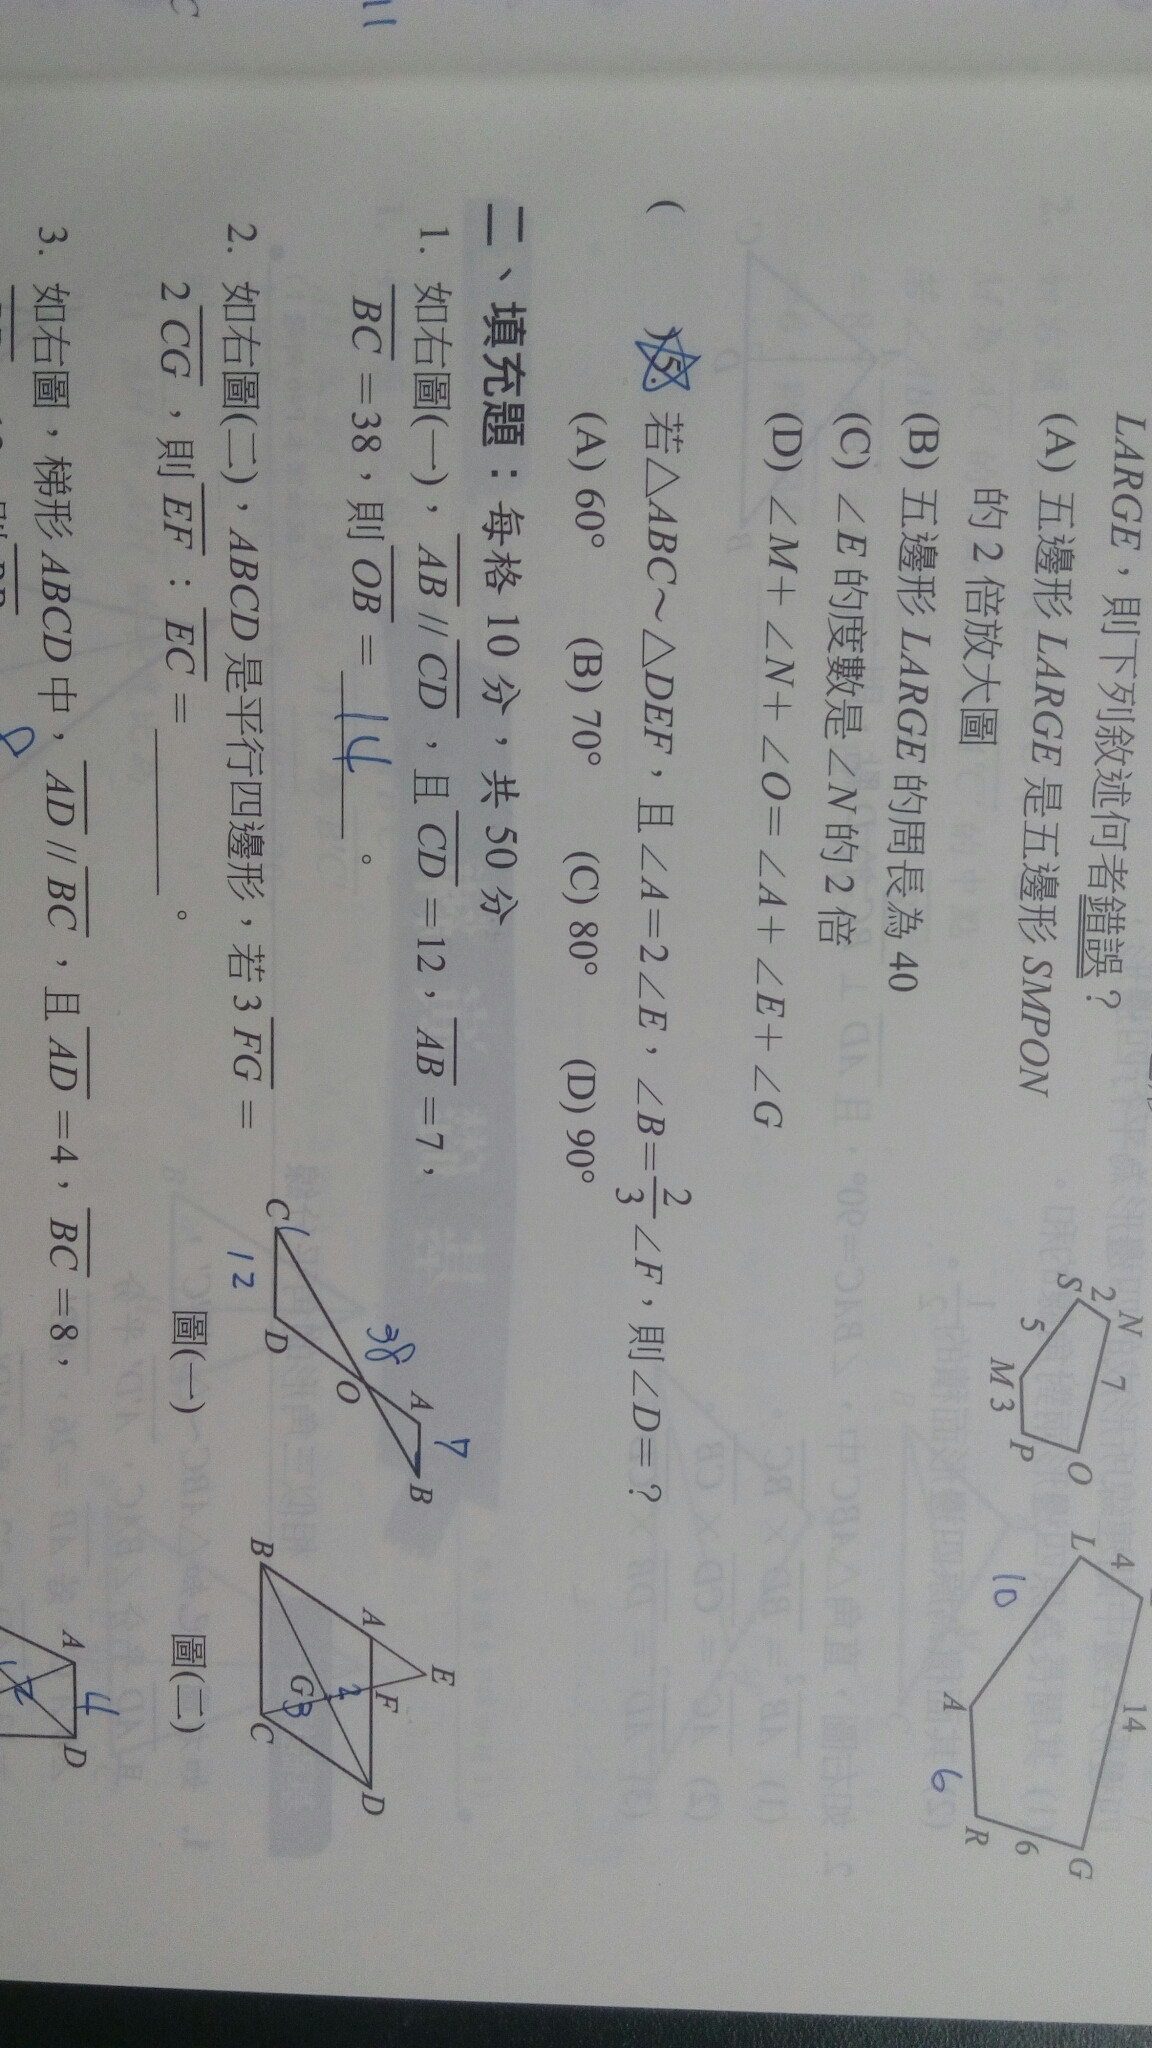 LARGE,則下列敘述何者錯誤?
(A) 五邊形 LARGE 是五邊形 SMPON
的 2 倍放大圖
(B) 五邊形 LARGE 的周長為 40
(C) ∠E 的度數是∠N 的 2 倍
(D) ∠M+∠N+∠O=∠A+∠E+∠G
N 2 S 7 5 M 3 P O
L 4 14 10 A 6 R 6 G
( )5. 若△ABC~△DEF,且∠A=2∠E,∠B=2/3∠F,則∠D=?
(A) 60° (B) 70° (C) 80° (D) 90°
二、填充題:每格 10 分,共 50 分
1. 如右圖(一),AB // CD,且 CD =12,AB =7,
BC =38,則 OB = 14 。
2. 如右圖(二),ABCD 是平行四邊形,若 3 FG =
2 CG,則 EF:EC = 。
C 12 D O 38 A 7 B
圖(一)
E A F 2 B G 3 C D
圖(二)
3. 如右圖,梯形 ABCD 中,AD // BC,且 AD =4,BC =8,
A 4 D